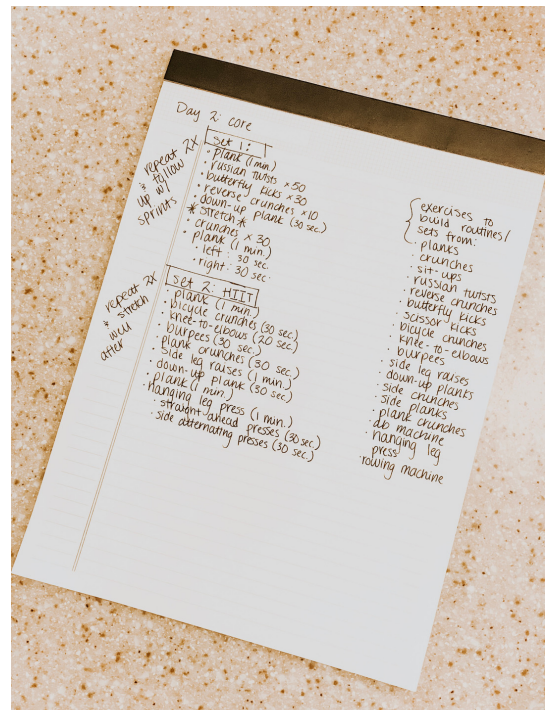 Day 2: core
repeat 2X
& follow
up w/
sprints
Set 1:
· plank (1 min.)
· russian twists x50
· butterfly kicks x30
· reverse crunches x10
· down-up plank (30 sec.)
* stretch *
· crunches x 30
· plank (1 min.)
· left: 30 sec.
· right: 30 sec.
repeat 2x
& stretch
well
after
Set 2: HIIT
· plank (1 min.)
· bicycle crunches (30 sec.)
· knee-to-elbows (20 sec.)
· burpees (30 sec.)
· plank crunches (30 sec.)
· side leg raises (1 min.)
· down-up plank (30 sec.)
· plank (1 min.)
· hanging leg press (1 min.)
· straight-ahead presses (30 sec.)
· side alternating presses (30 sec.)
exercises to
build routines/
sets from:
· planks
· crunches
· sit-ups
· russian twists
· reverse crunches
· butterfly kicks
· scissor kicks
· bicycle crunches
· knee-to-elbows
· burpees
· side leg raises
· down-up planks
· side crunches
· side planks
· plank crunches
· ab machine
· hanging leg
press
· rowing machine